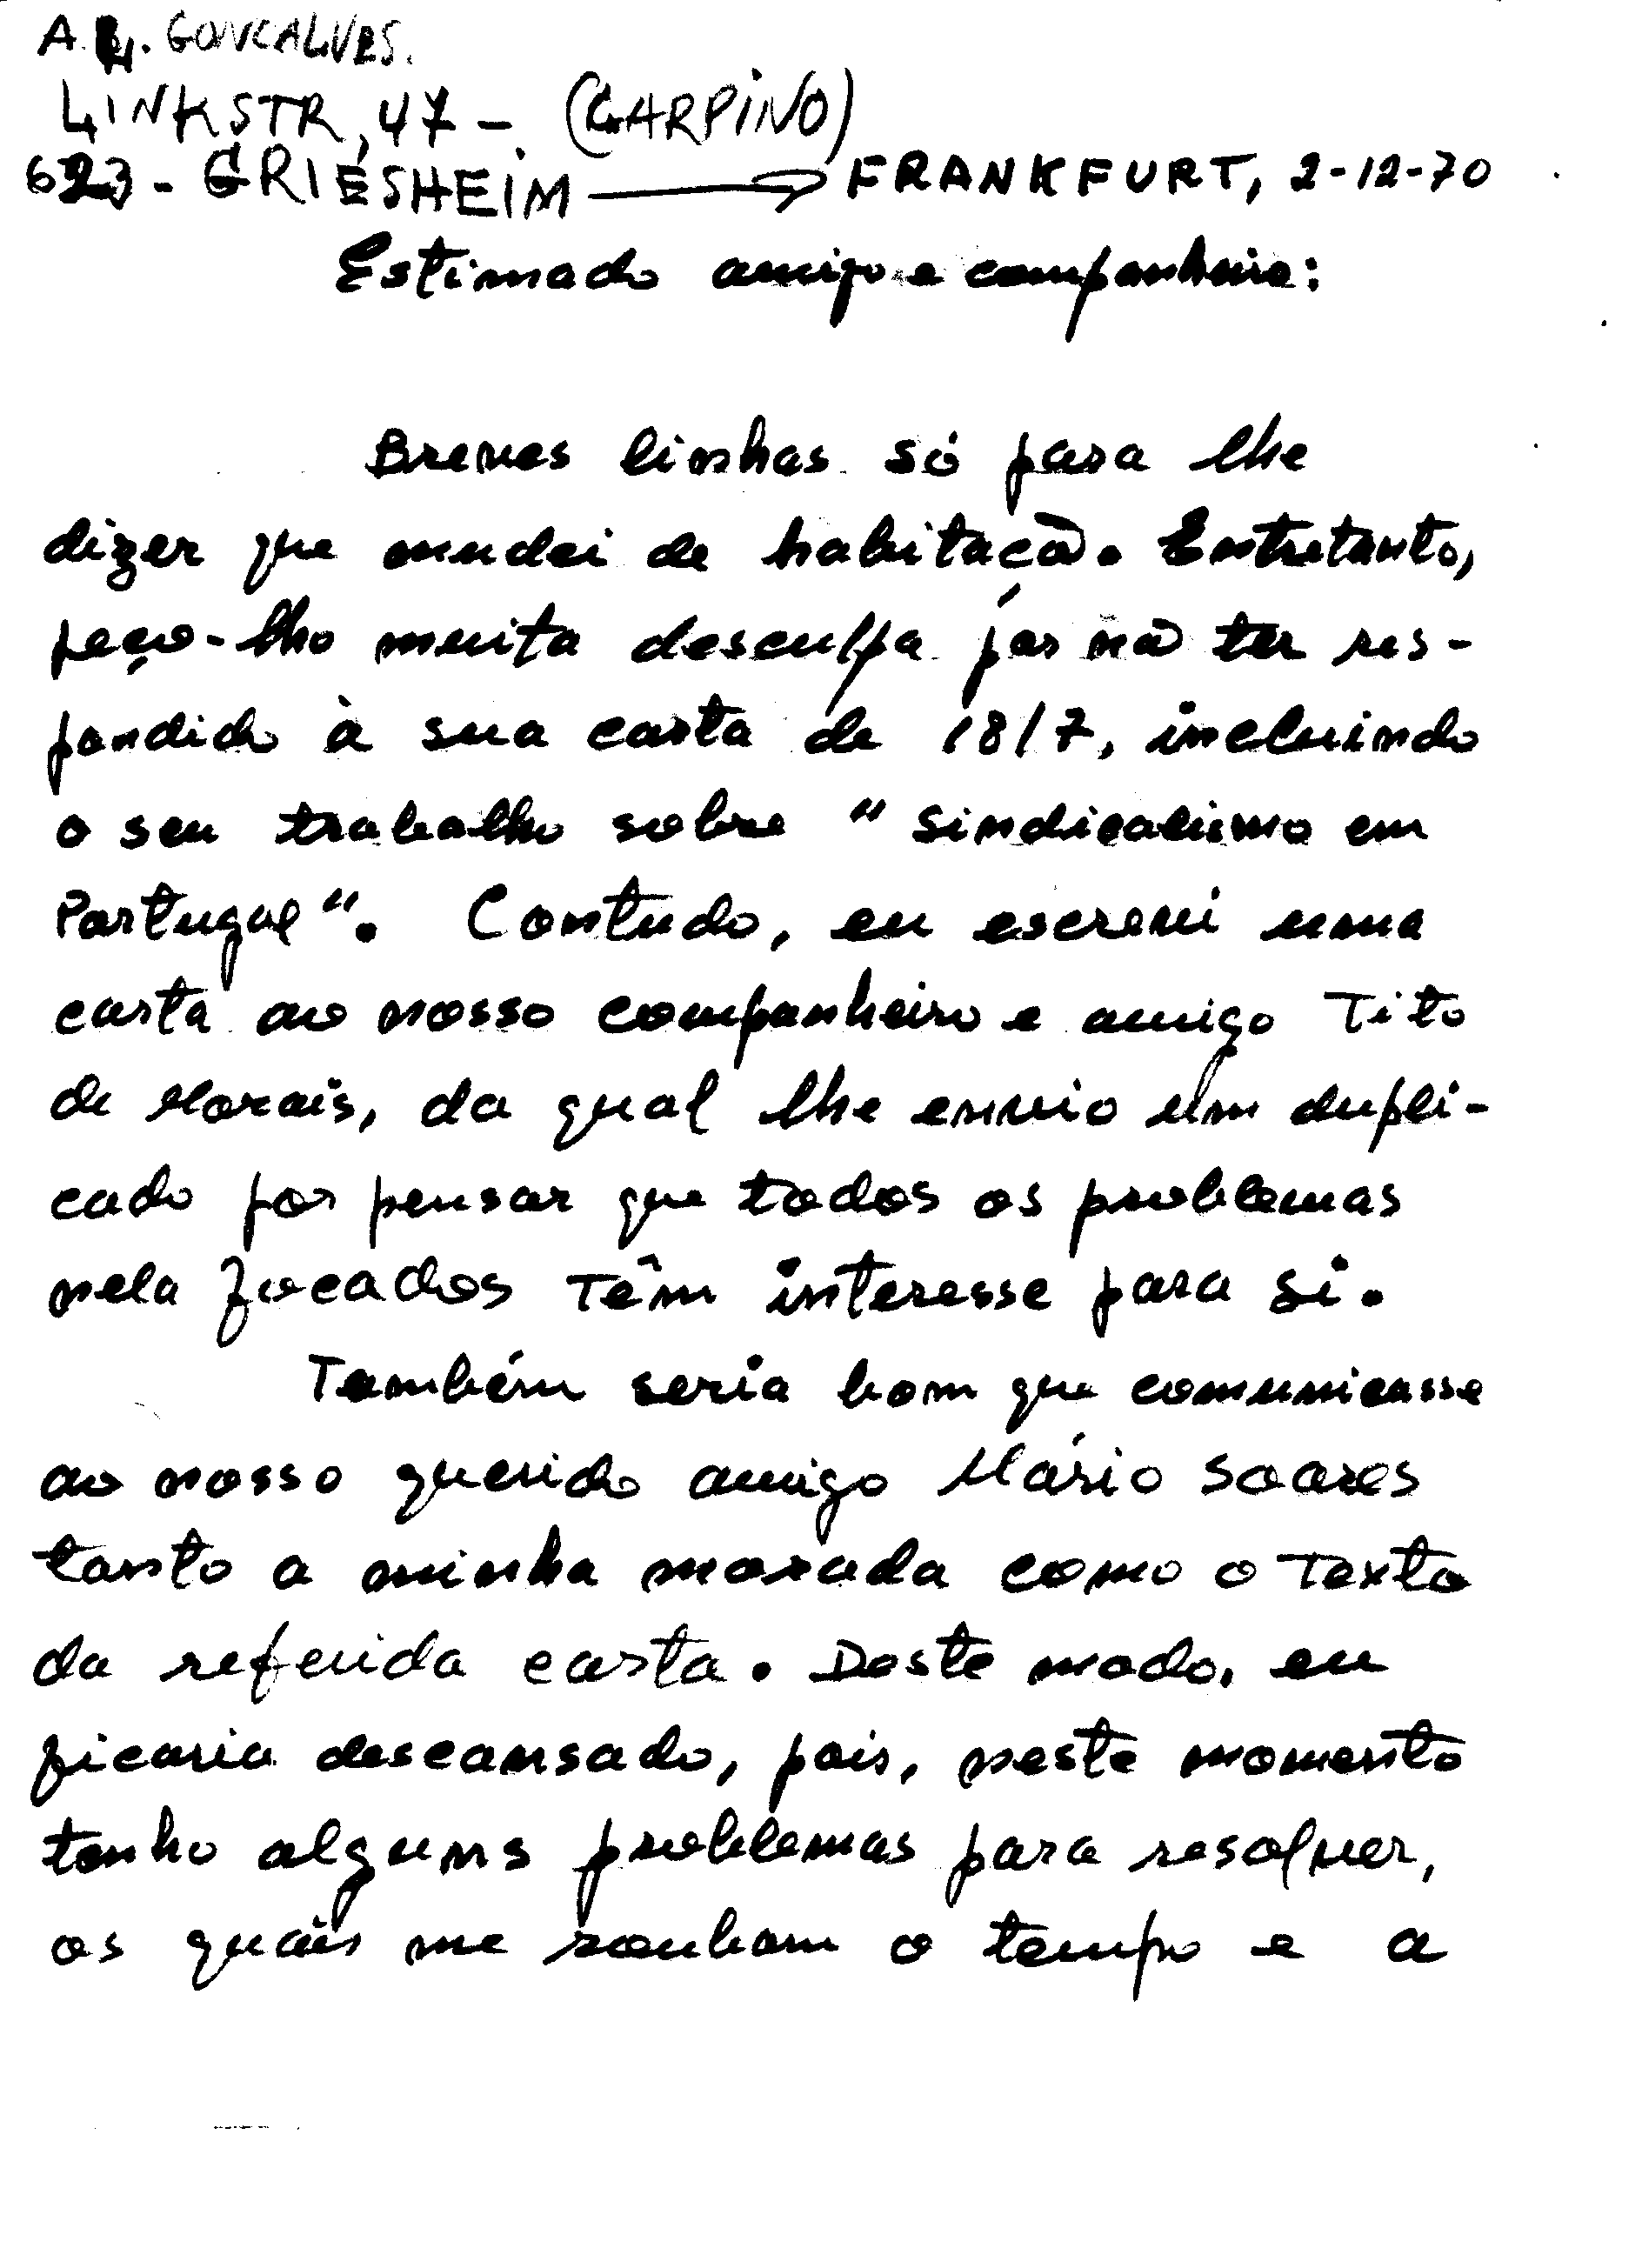 A. H. GONCALVES.
LINKSTR, 47 - (GARPINO)
623 - GRIESHEIM → FRANKFURT, 2-12-70
Estimado amigo e companheiro:
Breves linhas só para lhe
dizer que mudei de habitação. Entretanto,
peço-lho muita desculpa por não ter res-
pondido à sua carta de 18/7, incluindo
o seu trabalho sobre "sindicalismo em
Portugal". Contudo, eu escrevi uma
carta ao nosso companheiro e amigo Tito
de Morais, da qual lhe envio um dupli-
cado por pensar que todos os problemas
nela focados têm interesse para si.
Também seria bom que comunicasse
ao nosso querido amigo Mário Soares
tanto a minha morada como o texto
da referida carta. Deste modo, eu
ficaria descansado, pois, neste momento
tenho alguns problemas para resolver,
os quais me roubam o tempo e a